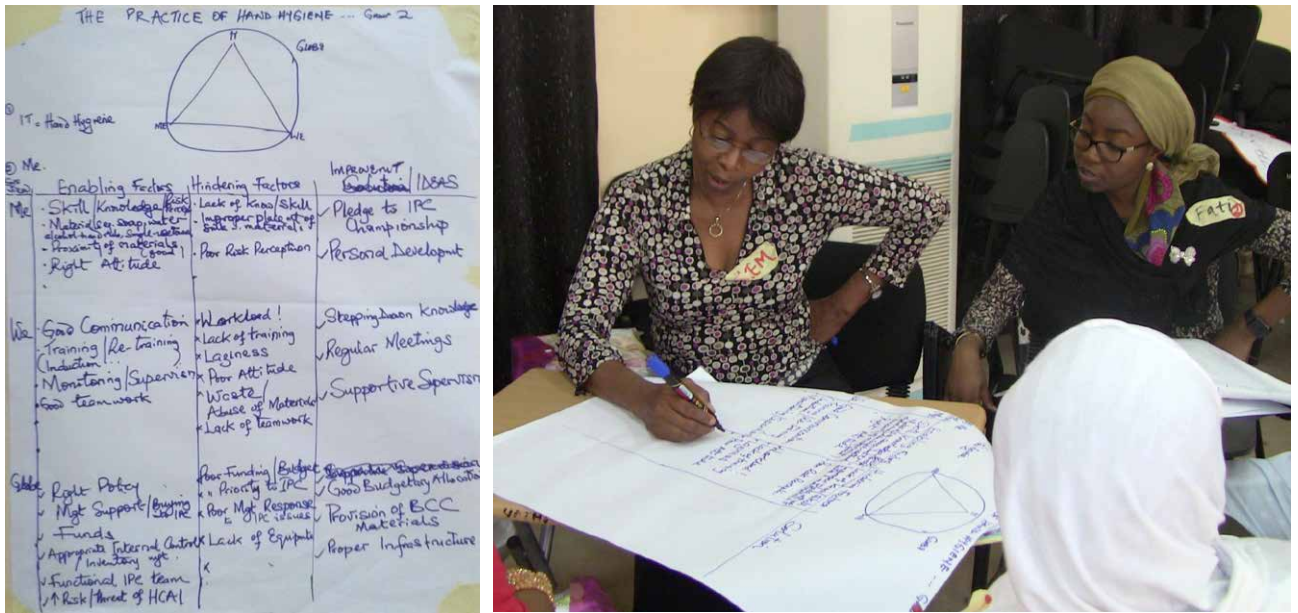 THE PRACTICE OF HAND HYGIENE ... Group 2
GLOBE
IT
ME
WE
① IT = Hand Hygiene
② Me.
Enabling Factors
Hindering Factors
IMPROVEMENT
/ IDEAS
Me
- Skill/Knowledge/Risk
- Materials eg soap, water
- Proximity of materials
- Right Attitude
- Lack of Know/Skill
- Improper placement of
materials
- Poor Risk Perception
Pledge to IPC
Championship
Personal Developmt
We
- Good Communication
Training/Re-training
(Induction...
- Monitoring/Supervision
Good teamwork
Workload!
Lack of training
Laziness
Poor Attitude
Waste/
Abuse of Materials
Lack of Teamwork
Stepping Down Knowledge
Regular Meetings
Supportive Supervision
Globe
Right Policy
Mgt Support/Buying
Funds
Appropriate Internal Control
/Inventory mgt.
Functional IPC team
↑ Risk/threat of HCAI
Poor Funding/Budget
" Priority to IPC
Poor Mgt Response
to IPC issues
Lack of Equipmts
Good Budgetary Allocation
Provision of BCC
Materials
Proper Infrastructure
Panasonic
KEM
Fati